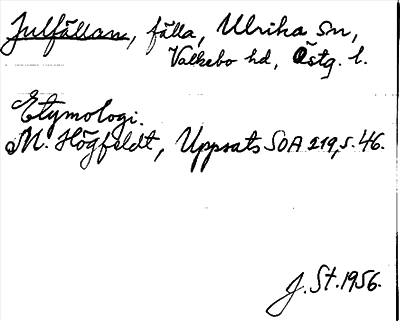 Julfällan, fälla, Ulrika sn,
Valkebo hd, Östg. l.
Etymologi.
M. Högfeldt, Uppsats SOA 219, s. 46.
J. St. 1956.